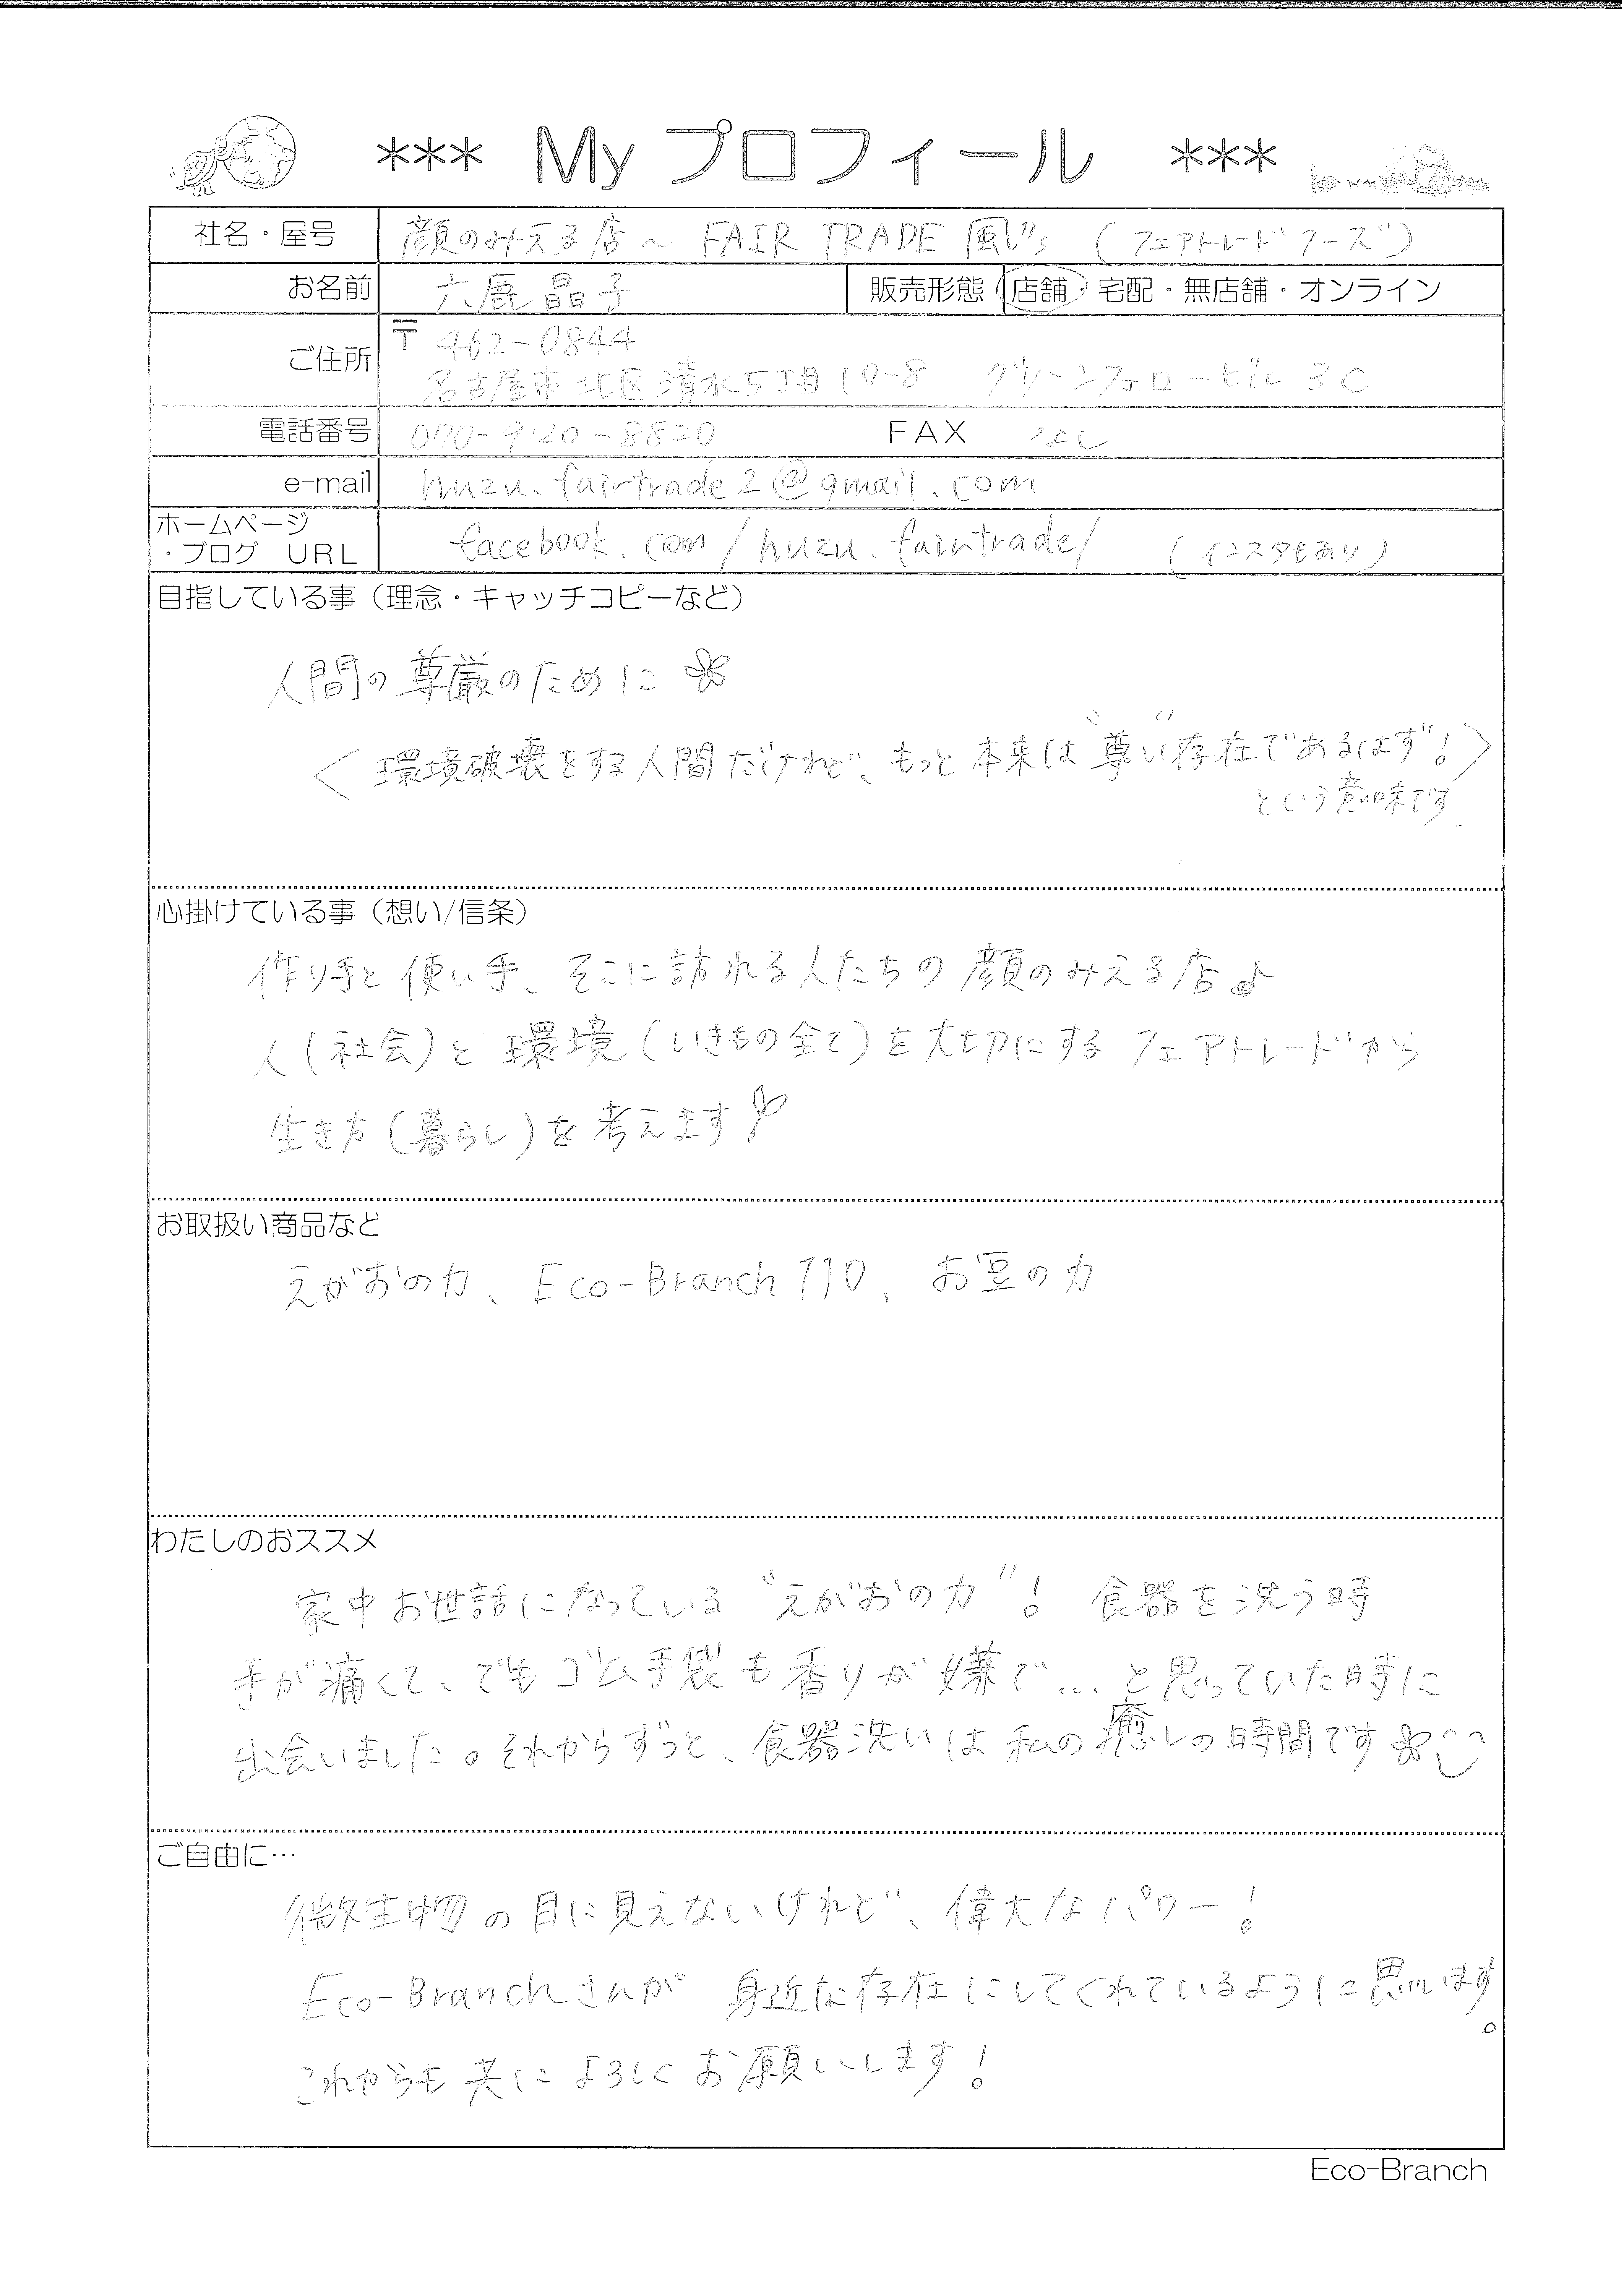 *** My プロフィール ***
社名・屋号 顔のみえる店～ FAIR TRADE 風's (フェアトレード フーズ)
お名前 六鹿晶子 販売形態 店舗・宅配・無店舗・オンライン
ご住所 〒462-0844
名古屋市北区清水5丁目10-8 グリーンフェロービル 3C
電話番号 070-9120-8820 FAX なし
e-mail huzu.fairtrade2@gmail.com
ホームページ
・ブログ URL facebook.com/huzu.fairtrade/ (インスタもあり)
目指している事（理念・キャッチコピーなど）
人間の尊厳のために
〈環境破壊をする人間だけれど、もっと本来は"尊い"存在であるはず!〉
という意味です
心掛けている事（想い/信条）
作り手と使い手、そこに訪れる人たちの顔のみえる店♪
人(社会)と環境(いきもの全て)を大切にするフェアトレードから
生き方(暮らし)を考えます
お取扱い商品など
えがおの力、Eco-Branch110、お豆の力
わたしのおススメ
家中お世話になっている"えがおの力"! 食器を洗う時
手が痛くて、でもゴム手袋も香りが嫌で…と思っていた時に
出会いました。それからずっと、食器洗いは私の癒しの時間です
ご自由に…
微生物の目に見えないけれど、偉大なパワー!
Eco-Branchさんが身近な存在にしてくれているように思います。
これからも共によろしくお願いします!
Eco-Branch